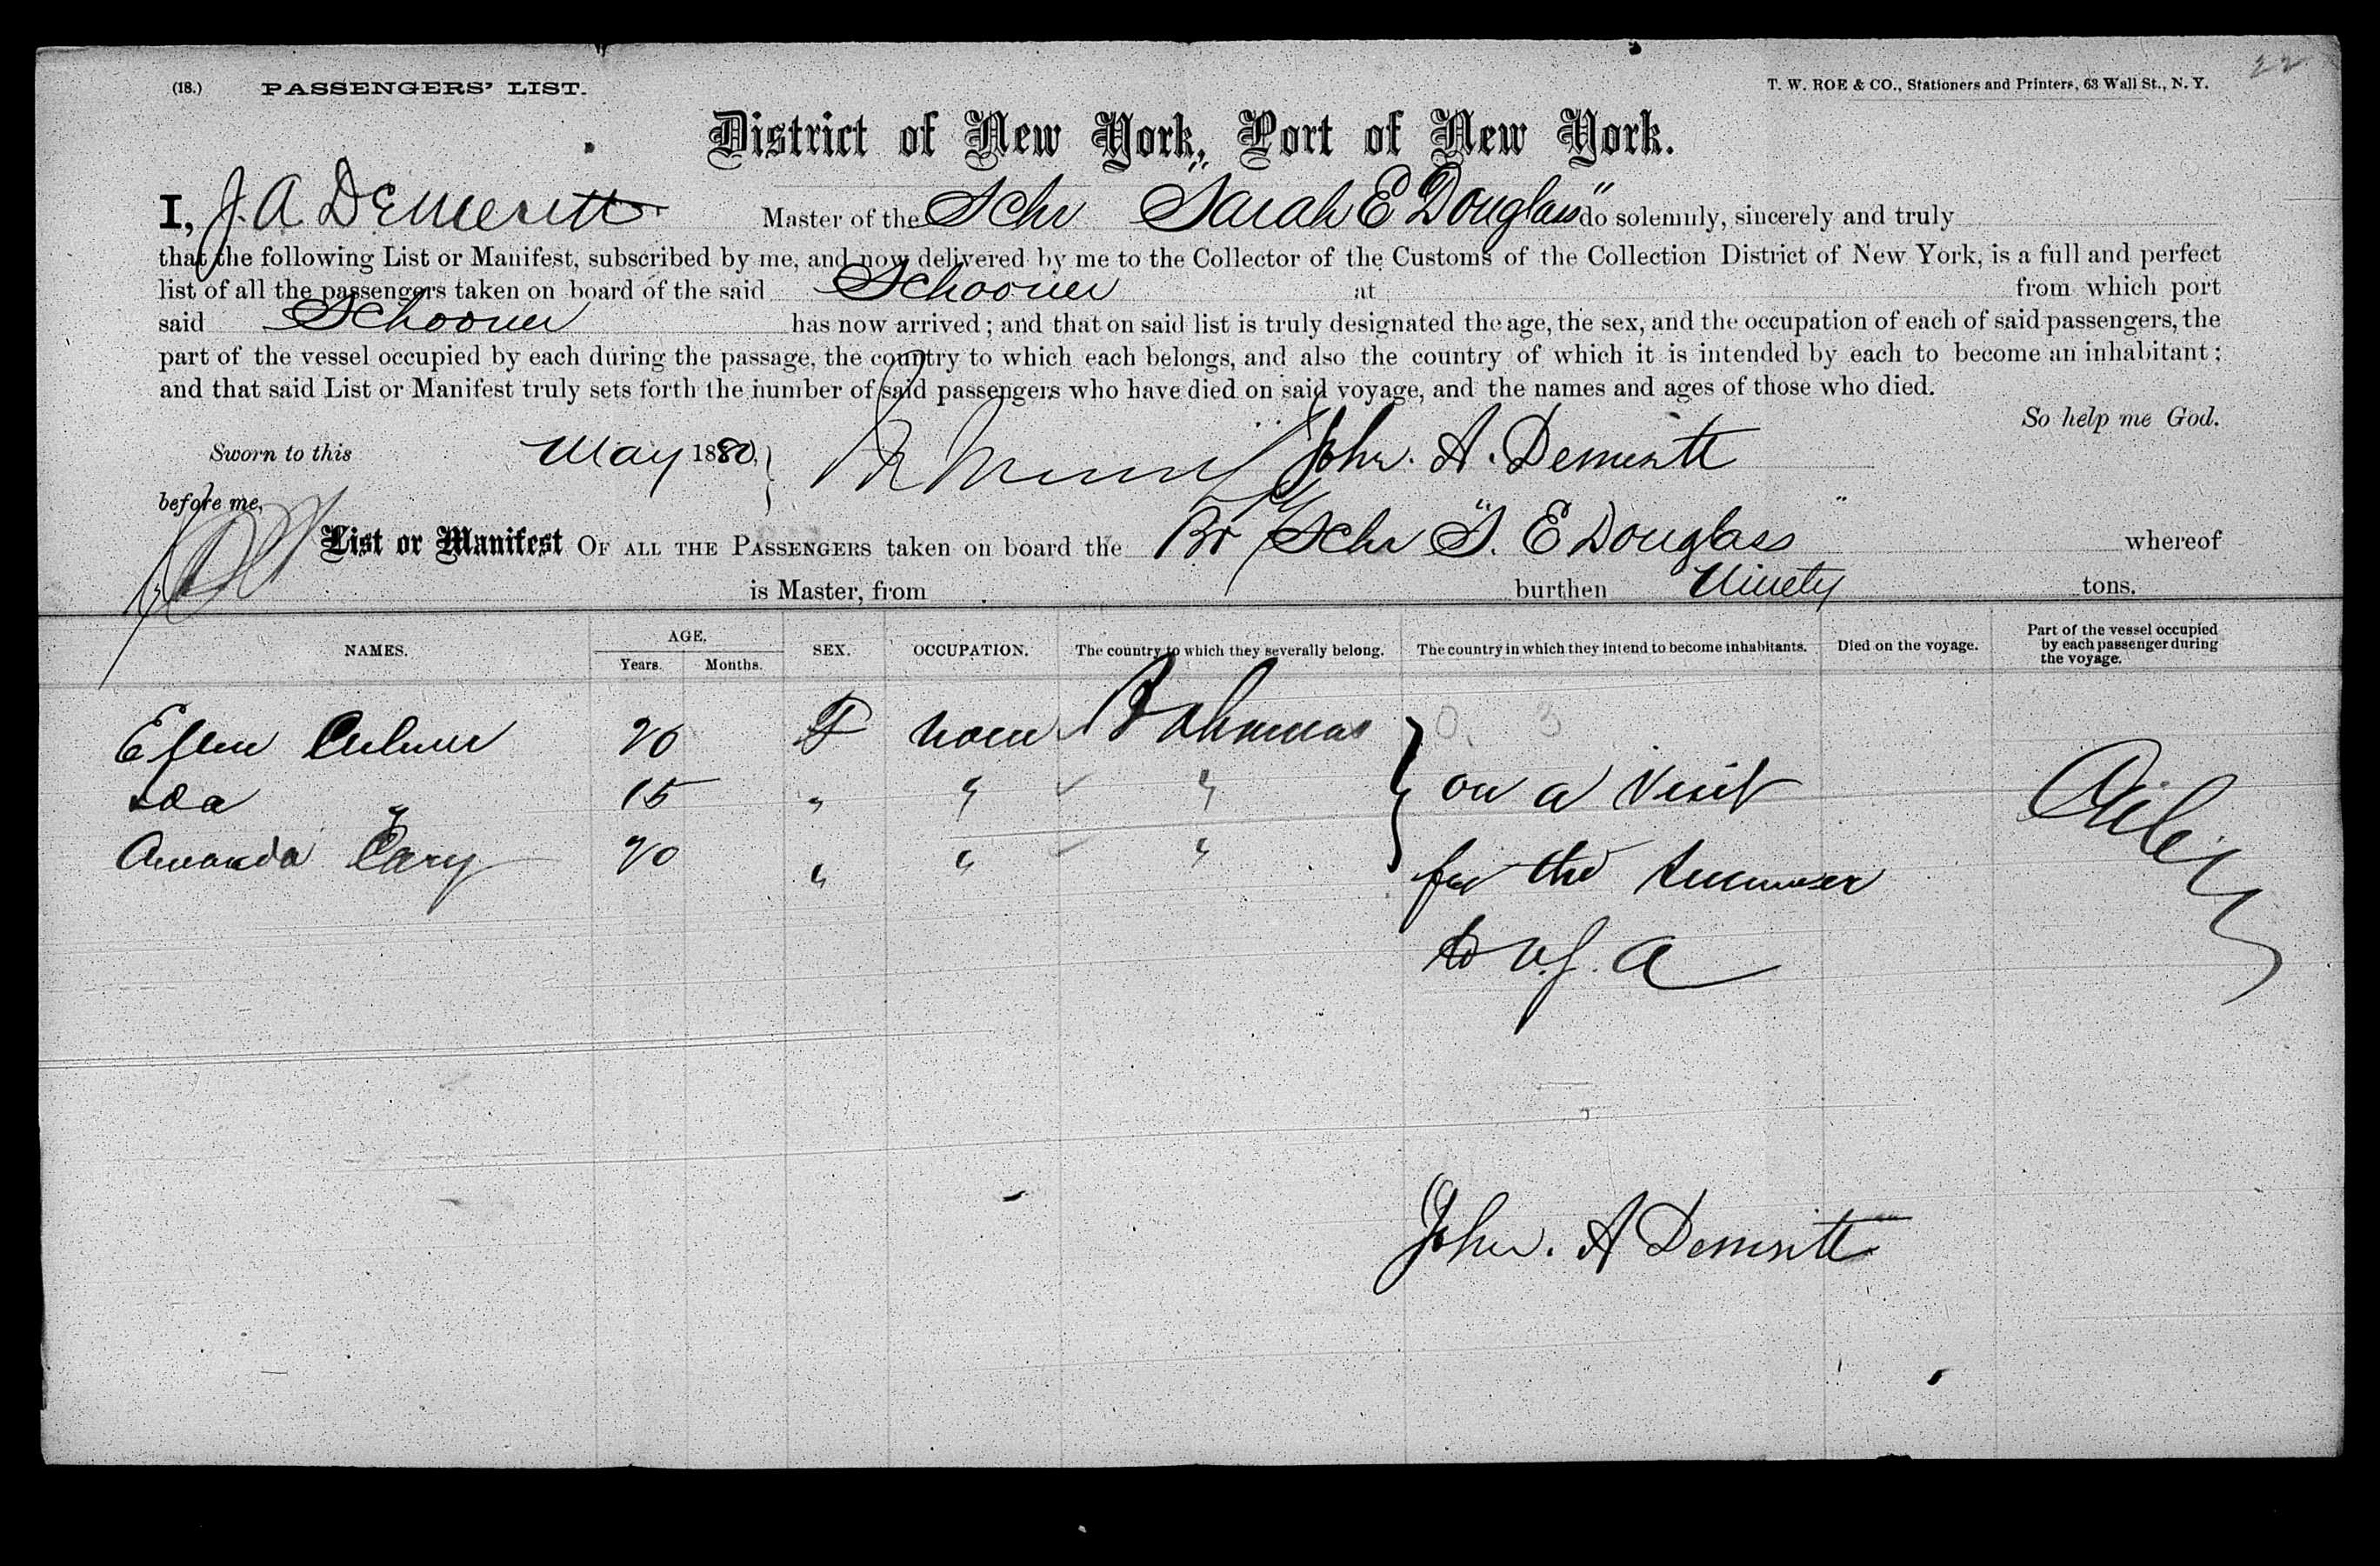 22
(18.) PASSENGERS' LIST. T. W. ROE & CO., Stationers and Printers, 63 Wall St., N. Y.
District of New York, Port of New York.
I, J. A. Demeritt Master of the Schr "Sarah E Douglass" do solemnly, sincerely and truly
that the following List or Manifest, subscribed by me, and now delivered by me to the Collector of the Customs of the Collection District of New York, is a full and perfect
list of all the passengers taken on board of the said Schooner at from which port
said Schooner has now arrived; and that on said list is truly designated the age, the sex, and the occupation of each of said passengers, the
part of the vessel occupied by each during the passage, the country to which each belongs, and also the country of which it is intended by each to become an inhabitant;
and that said List or Manifest truly sets forth the number of said passengers who have died on said voyage, and the names and ages of those who died.
So help me God.
Sworn to this May 1880, John. A. Demeritt
before me,
List or Manifest OF ALL THE PASSENGERS taken on board the Br Schr "S. E Douglass" whereof
is Master, from burthen Ninety tons.
NAMES. AGE. Years. Months. SEX. OCCUPATION. The country to which they severally belong. The country in which they intend to become inhabitants. Died on the voyage. Part of the vessel occupied by each passenger during the voyage.
Culmer 20 F none Bahamas
Ida " 15 " " " on a visit
Amanda Cary 20 " " " for the summer
to U.S. A
John. A Demeritt